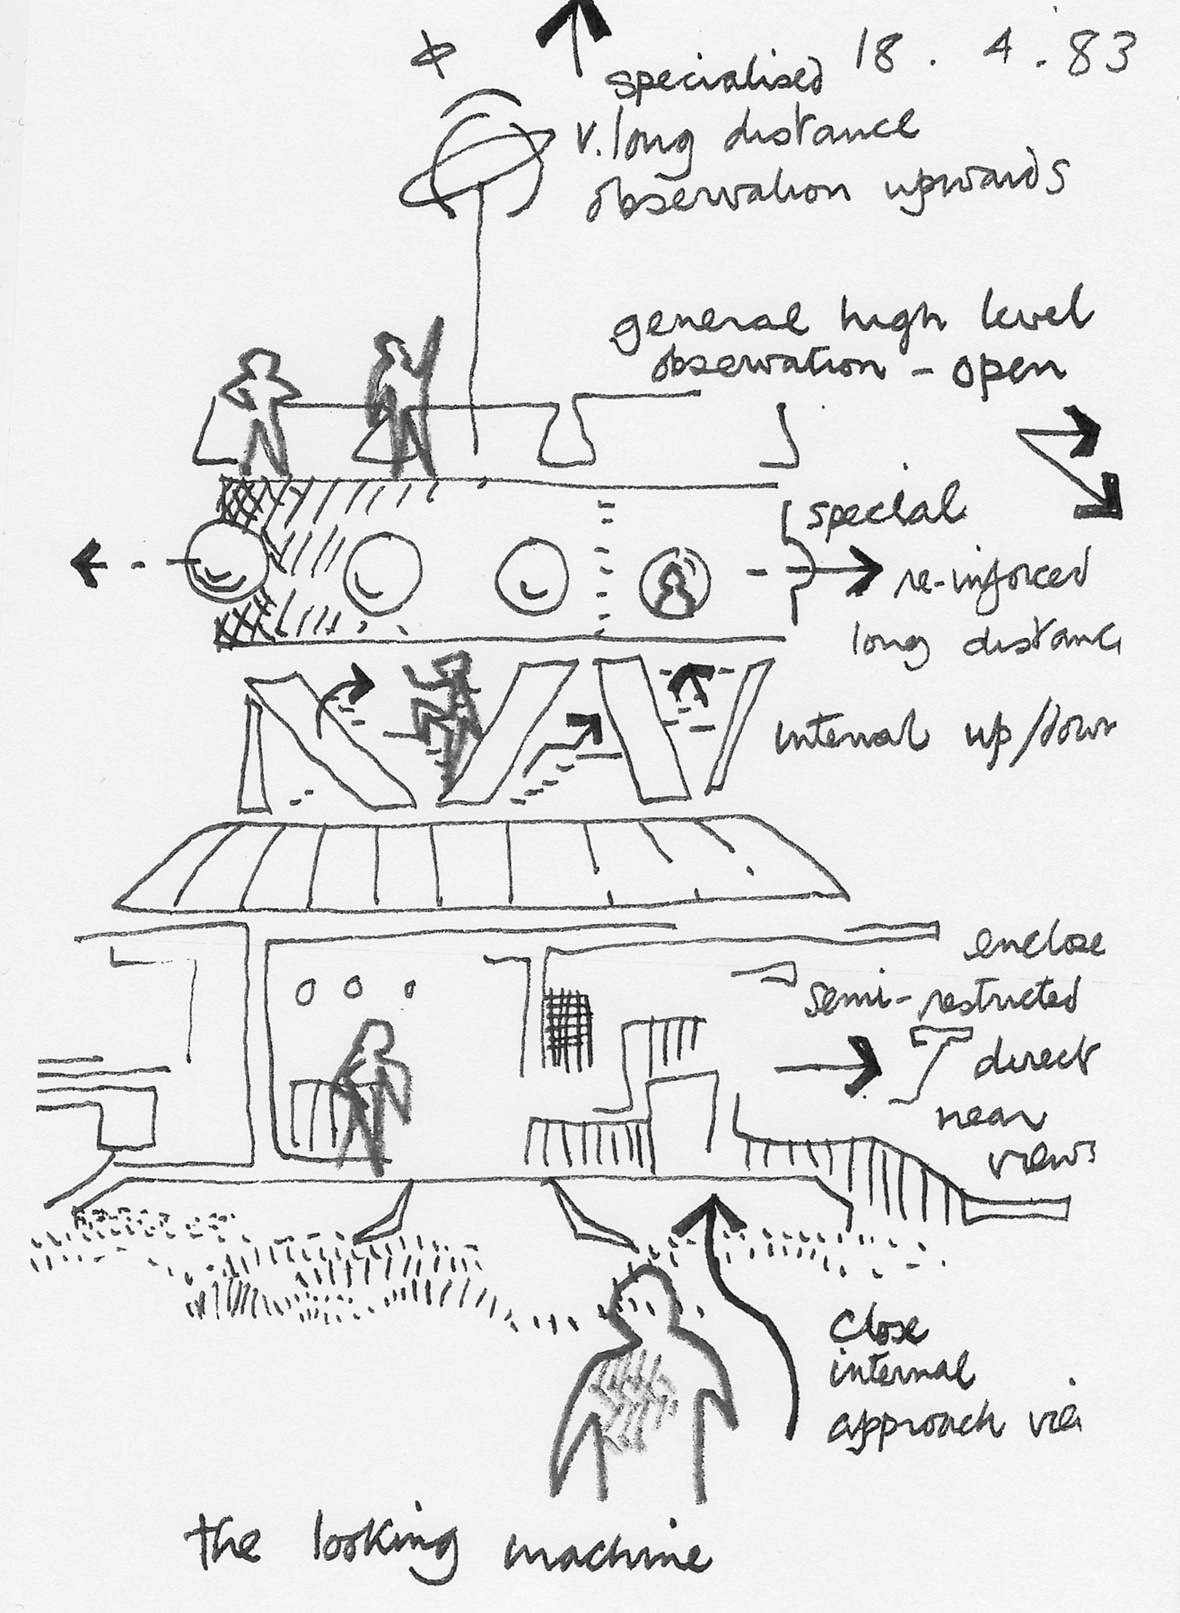 18 . 4 . 83
specialised
v. long distance
observation upwards
general high level
observation - open
special
re-inforced
long distance
internal up/down
enclose
semi-restricted
direct
near
views
close
internal
approach view
the looking machine